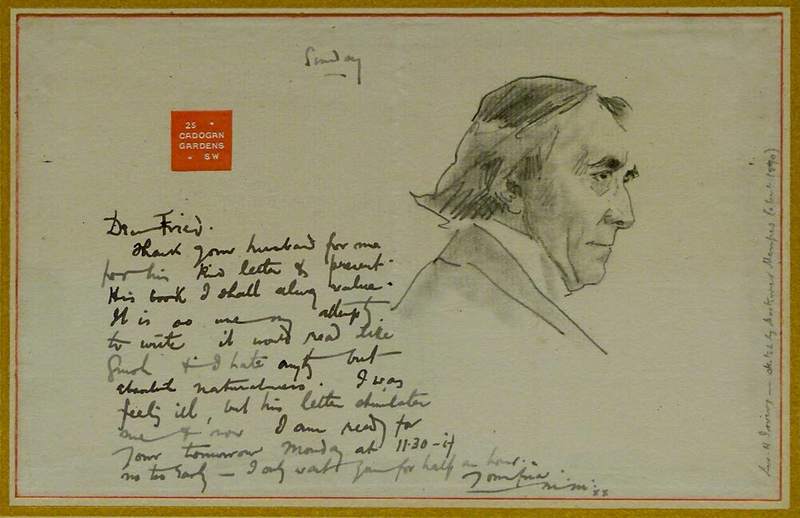 Sunday
25
CADOGAN
GARDENS
SW
Dear Friend.
Thank your husband for me
for his kind letter & present.
His book I shall always value.
It is no use my attempt
to write it would read like
& I hate but
absolute naturalness. I was
feeling ill, but his letter stimulates
me & now I am ready for
your tomorrow Monday at 11-30-if
no too early — I only want you for half an hour.
xx
H Irving — sketch by Mortimer Menpes